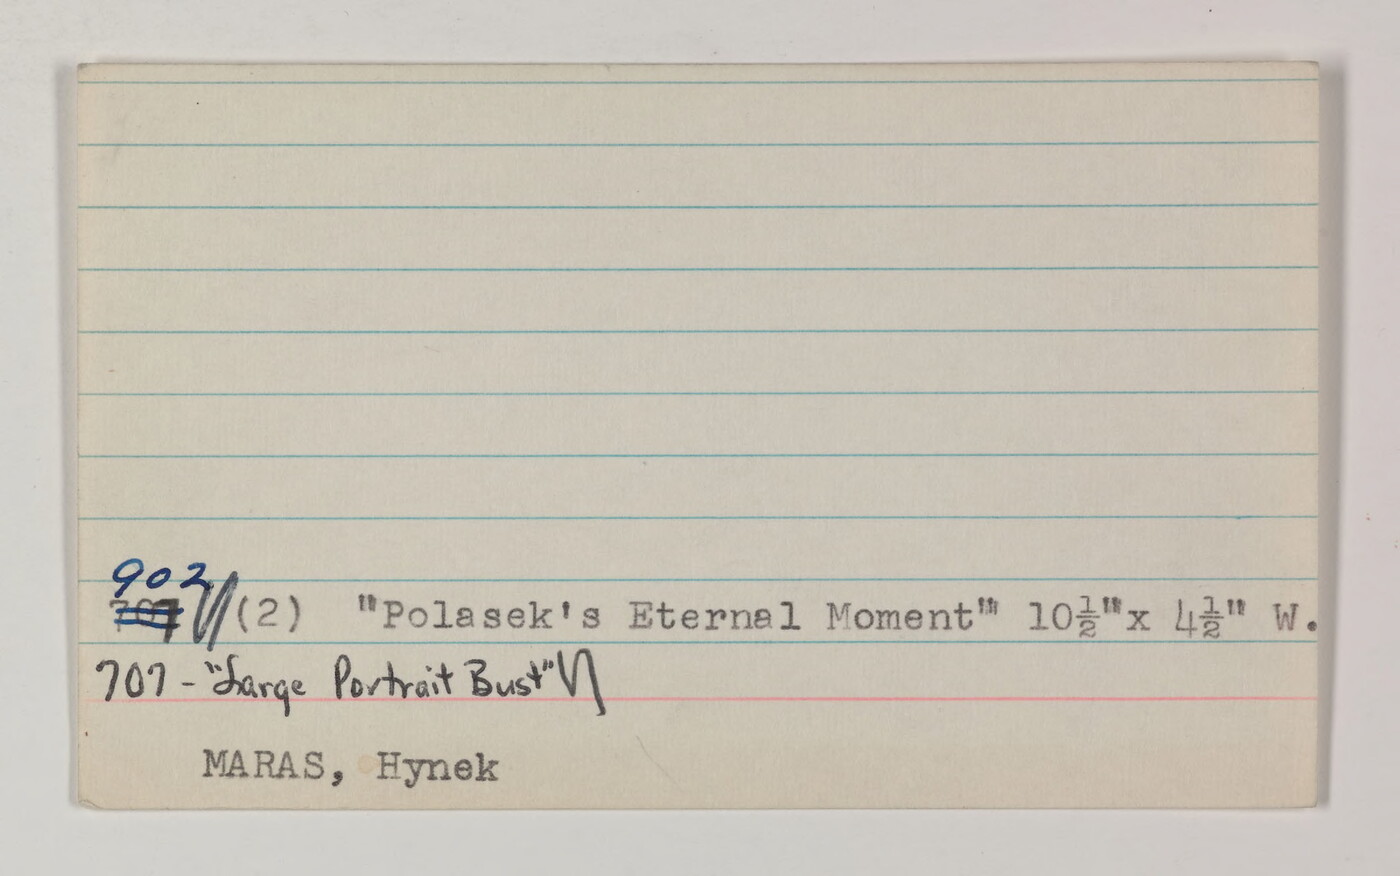 902
707 (2) "Polasek's Eternal Moment" 10½"x 4½" W.
707 - "Large Portrait Bust"
MARAS, Hynek